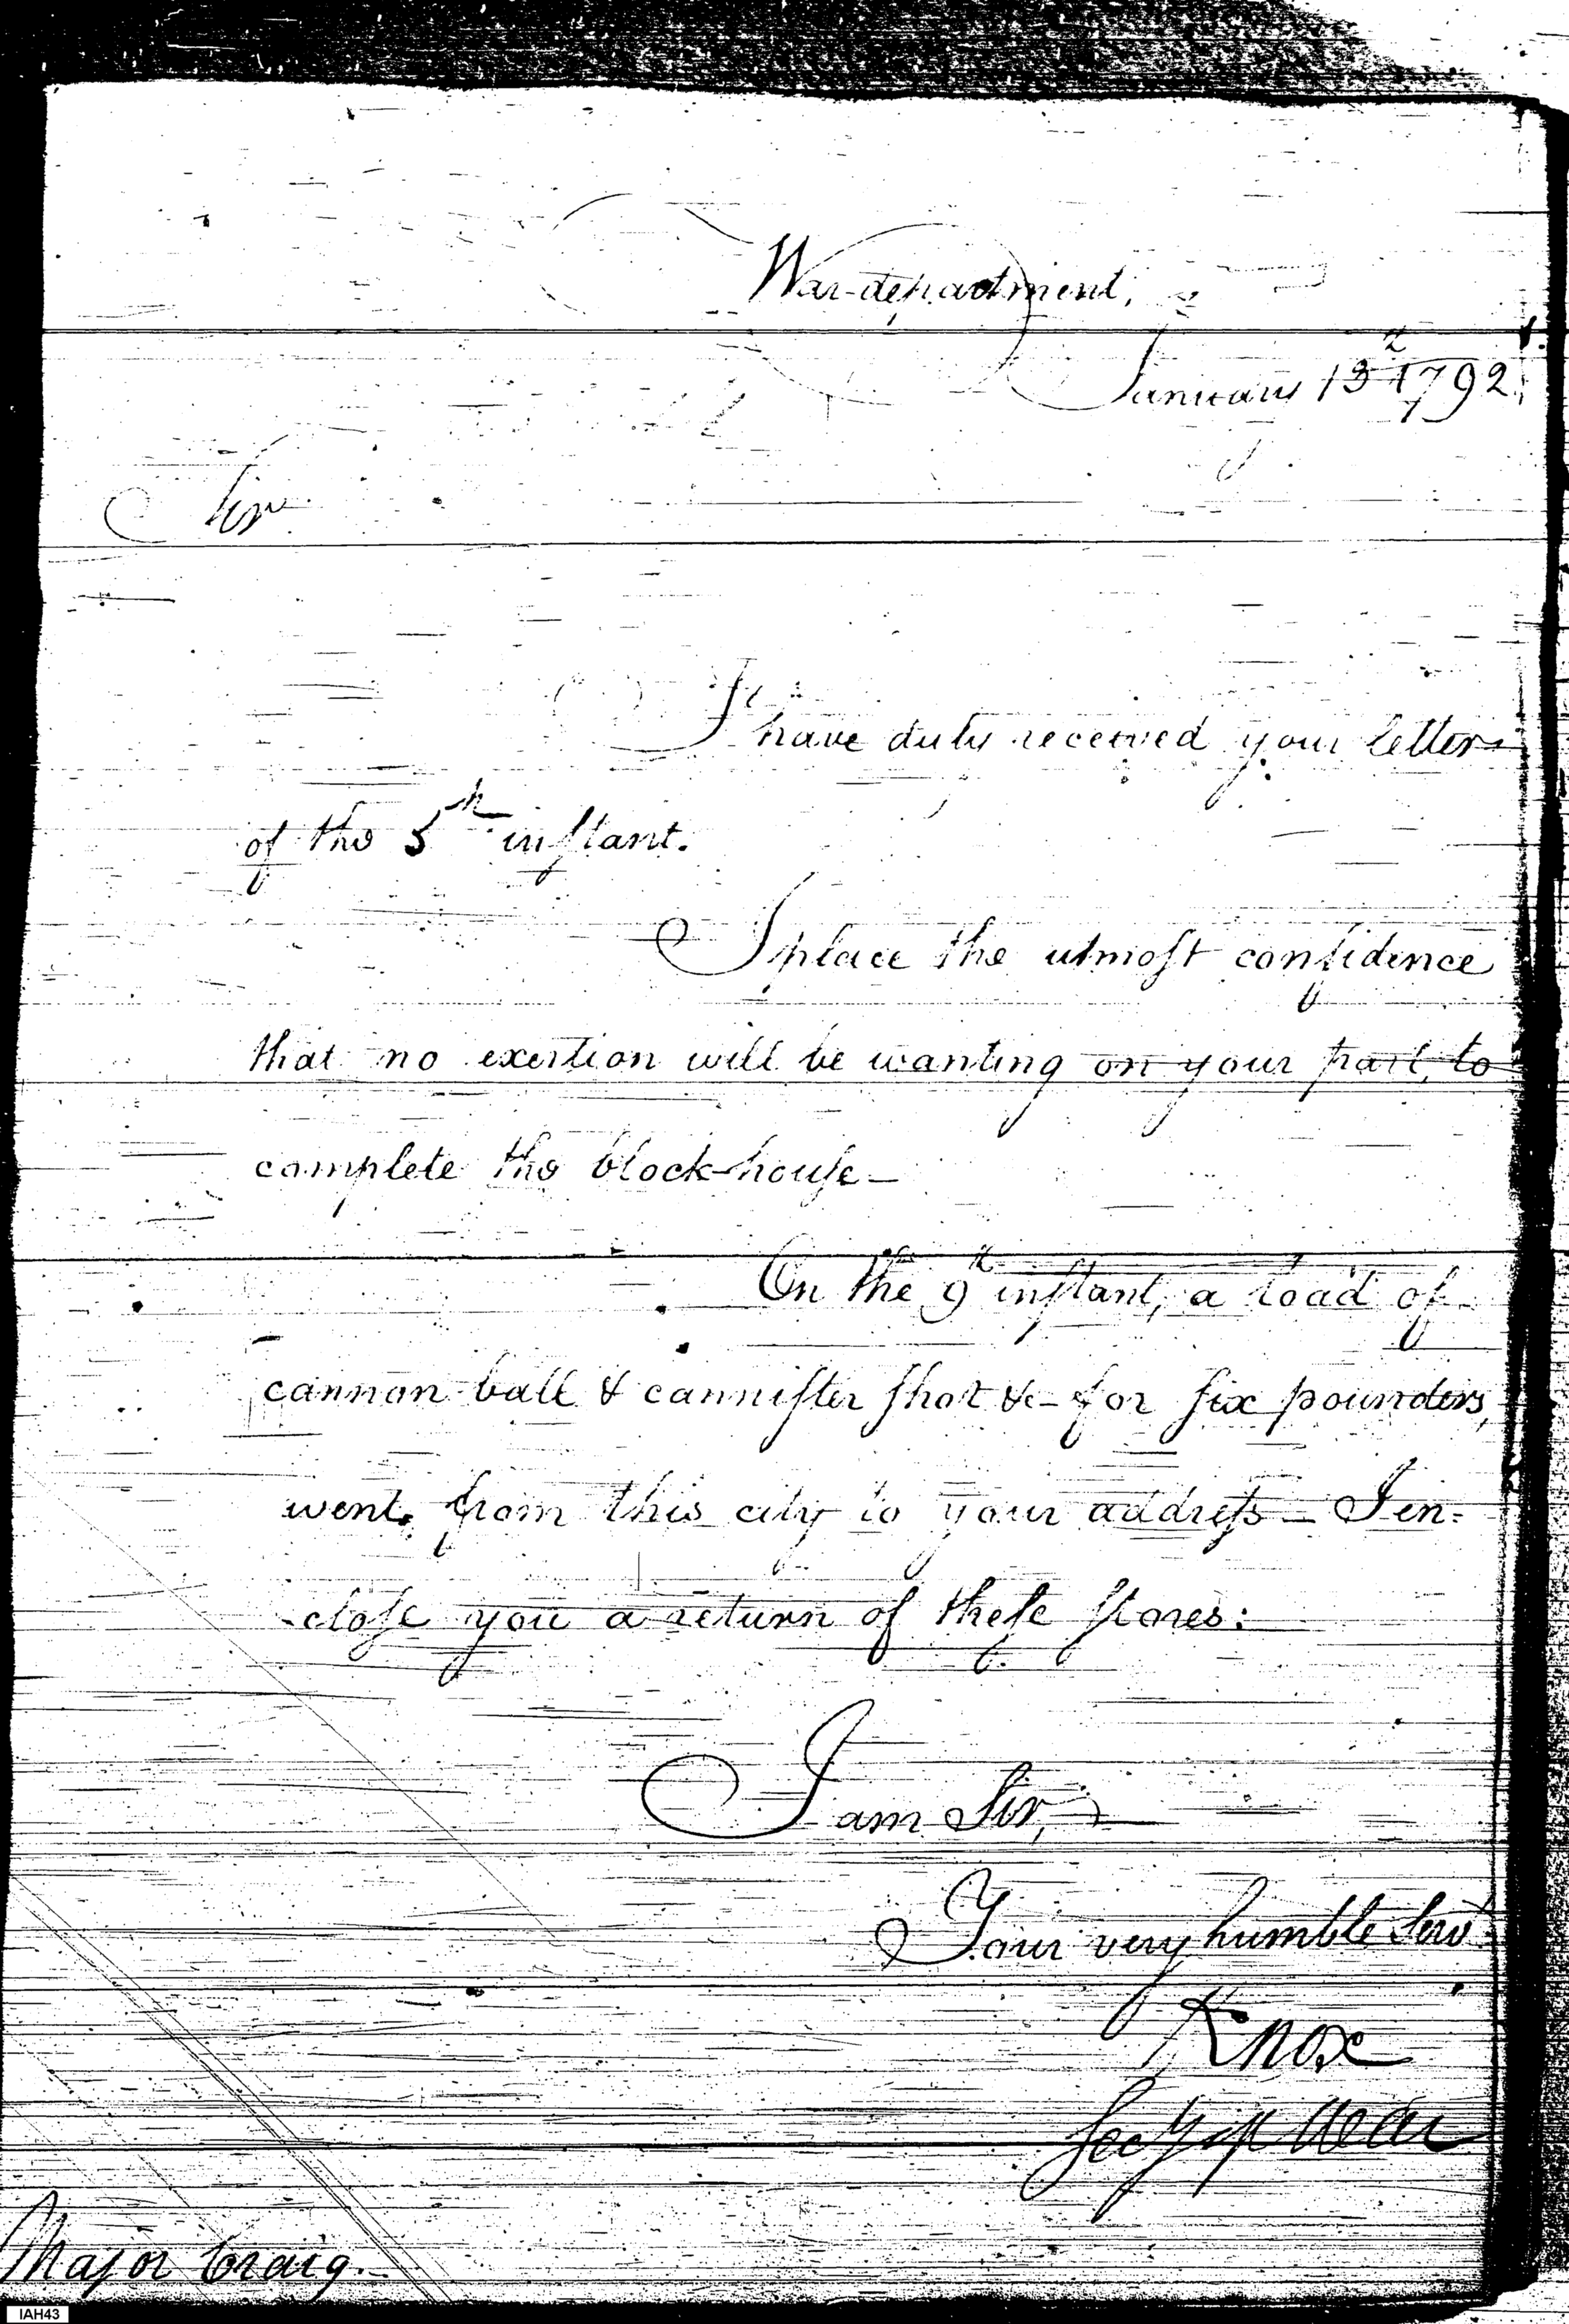 War-department,
January 13 1792.
Sir
I have duly received your letter
of the 5th instant.
I place the utmost confidence
that no exertion will be wanting on your part, to
complete the block-house—
On the 9th instant, a load of
cannon ball & cannister shot &c— for six pounders,
went from this city to your address— I en-
-close you a return of these stores:
I am Sir,
Your very humble Servt
Knox
Secy of War
Major Craig.
IAH43